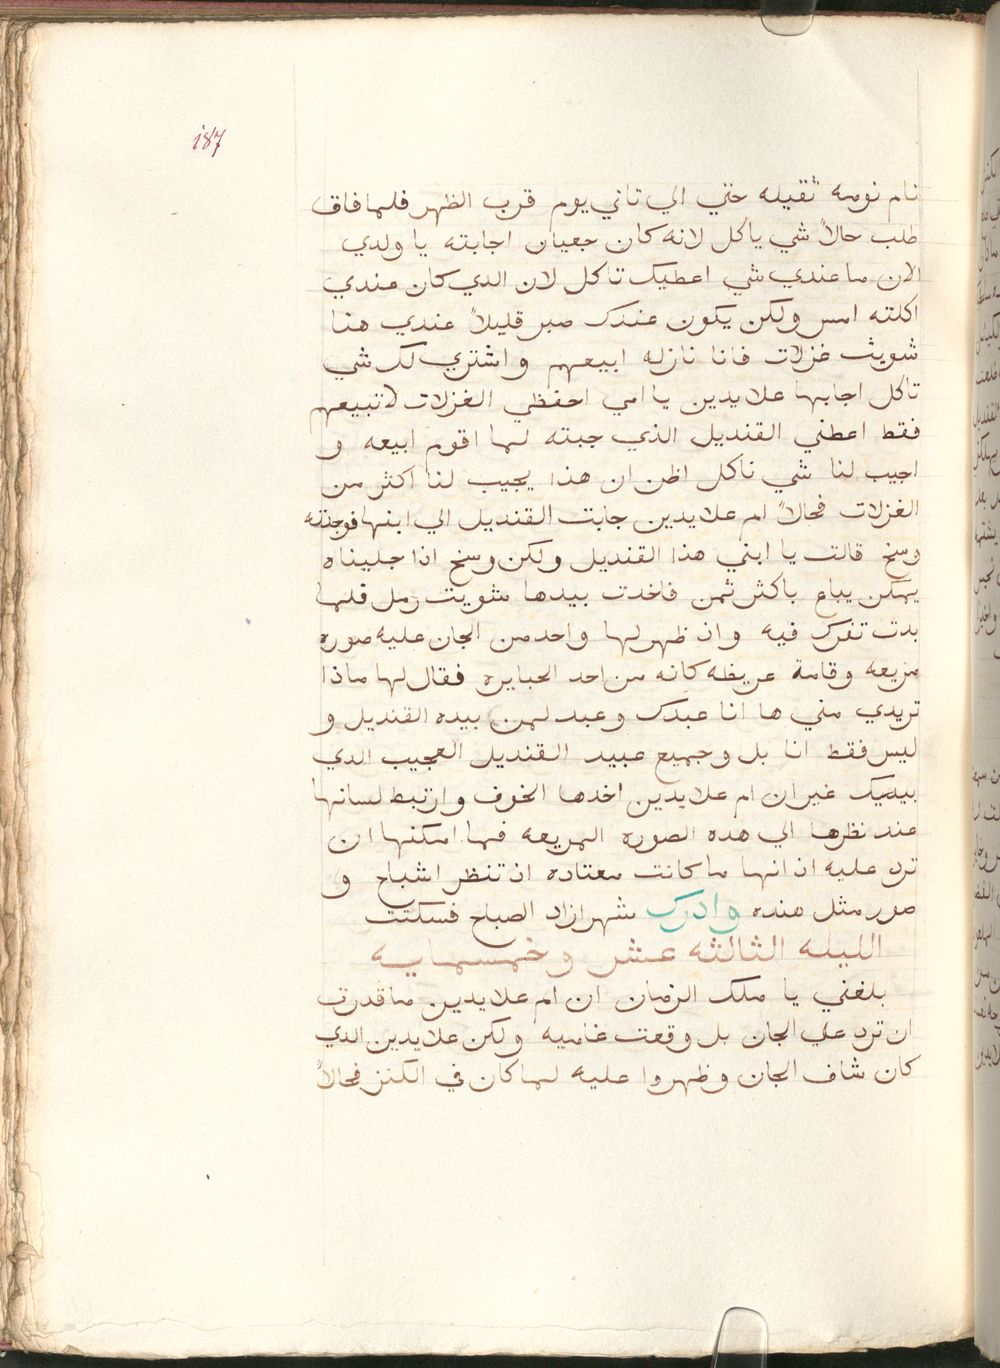 187
نام نومه ثقيله حتي الي تاني يوم قرب الظهر فلما فاق
طلب حالاً شي ياكل لانه كان جعيان اجابته يا ولدي
الان ما عندي شي اعطيك تاكل لان الدي كان عندي
اكلته امس ولكن يكون عندك صبر قليلاً عندي هنا
شويت غزلات فانا نازله ابيعهم واشتري لك شي
تاكل اجابها علايدين يا امي احفظي الغزلات لا تبيعهم
فقط اعطني القنديل الذي جبته لما اقوم ابيعه و
اجيب لنا شي ناكل اظن ان هذا يجيب لنا اكثر من
الغزلات فحالاً ام علايدين جابت القنديل الي ابنها فوجدته
وسخ قالت يا ابني هذا القنديل ولكن وسخ اذا جليناه
يمكن يباع باكثر ثمن فاخدت بيدها شويت رمل فلما
بدت تفرك فيه واذ ظهر لها واحد من الجان عليه صوره
مريعه وقامة عريظه كانه من احد الجبايره فقال لها ماذا
تريدي مني ها انا عبدك وعبد لمن بيده القنديل و
ليس فقط انا بل وجميع عبيد القنديل العجيب الدي
بيديك غير ان ام علايدين اخدها الخوف وارتبط لسانها
عند نظرها الي هده الصوره المريعه فما امكنها ان
ترد عليه اذ انها ما كانت معتاده ان تنظر اشباح و
صور مثل هذه وادرك شهرازاد الصباح فسكتت
الليله الثالثه عشر وخمسمايه
بلغني يا ملك الزمان ان ام علايدين ما قدرت
ان ترد علي الجان بل وقعت غاميه ولكن علايدين الدي
كان شاف الجان وظهروا عليه لما كان في الكنز فحالاً